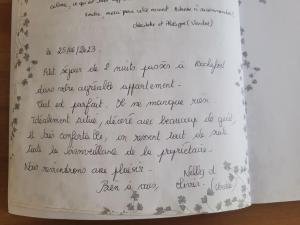 calme, ce qui est
merci pour votre accueil
Charlotte et Philippe (Vendée)
le 25/06/2023
Petit séjour de 2 nuits passés à Rochefort
dans votre agréable appartement.
Tout est parfait. Il ne manque rien
Idéalement situé, décoré avec beaucoup de goût
et très confortable, on ressent tout de suite
toute la bienveillance de la propriétaire.
Nous reviendrons avec plaisir.
Bien à vous, Nelly et
Olivier. (Vendée)